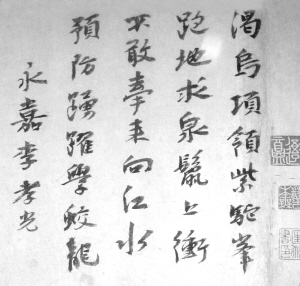 渴烏項領紫駝峯
跑地求泉鬣上衝
不敢牽來向江水
預防踴躍學蛟龍
永嘉李孝光